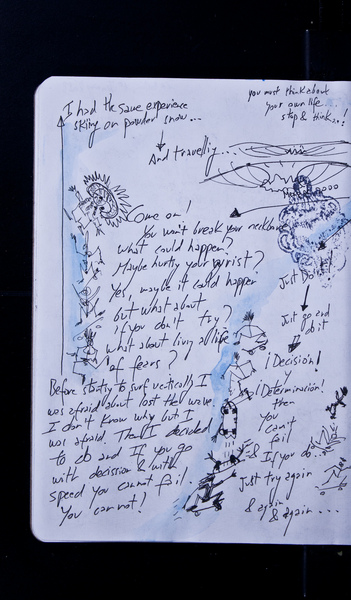 I had the same experience
skiing on powder snow...
you must think about
your own life...
stop & think...!
And travelling...
Come on!
You won't break your neckbone
what could happen?
Maybe hurting your wrist?
Yes, maybe it could happen
but what about
if you don't try?
what about living a life
of fears?
Before starting to surf vertically I
was afraid about lost the wave
I don't know why but I
was afraid. Then I decided
to do and If you go
with decision & with
speed you cannot fail.
You cannot!
Just Do it!
Just go and
do it
¡Decisión!
y
¡Determinación!
then
you
can't
fail
& If you do...
Just try again
& again
& again...